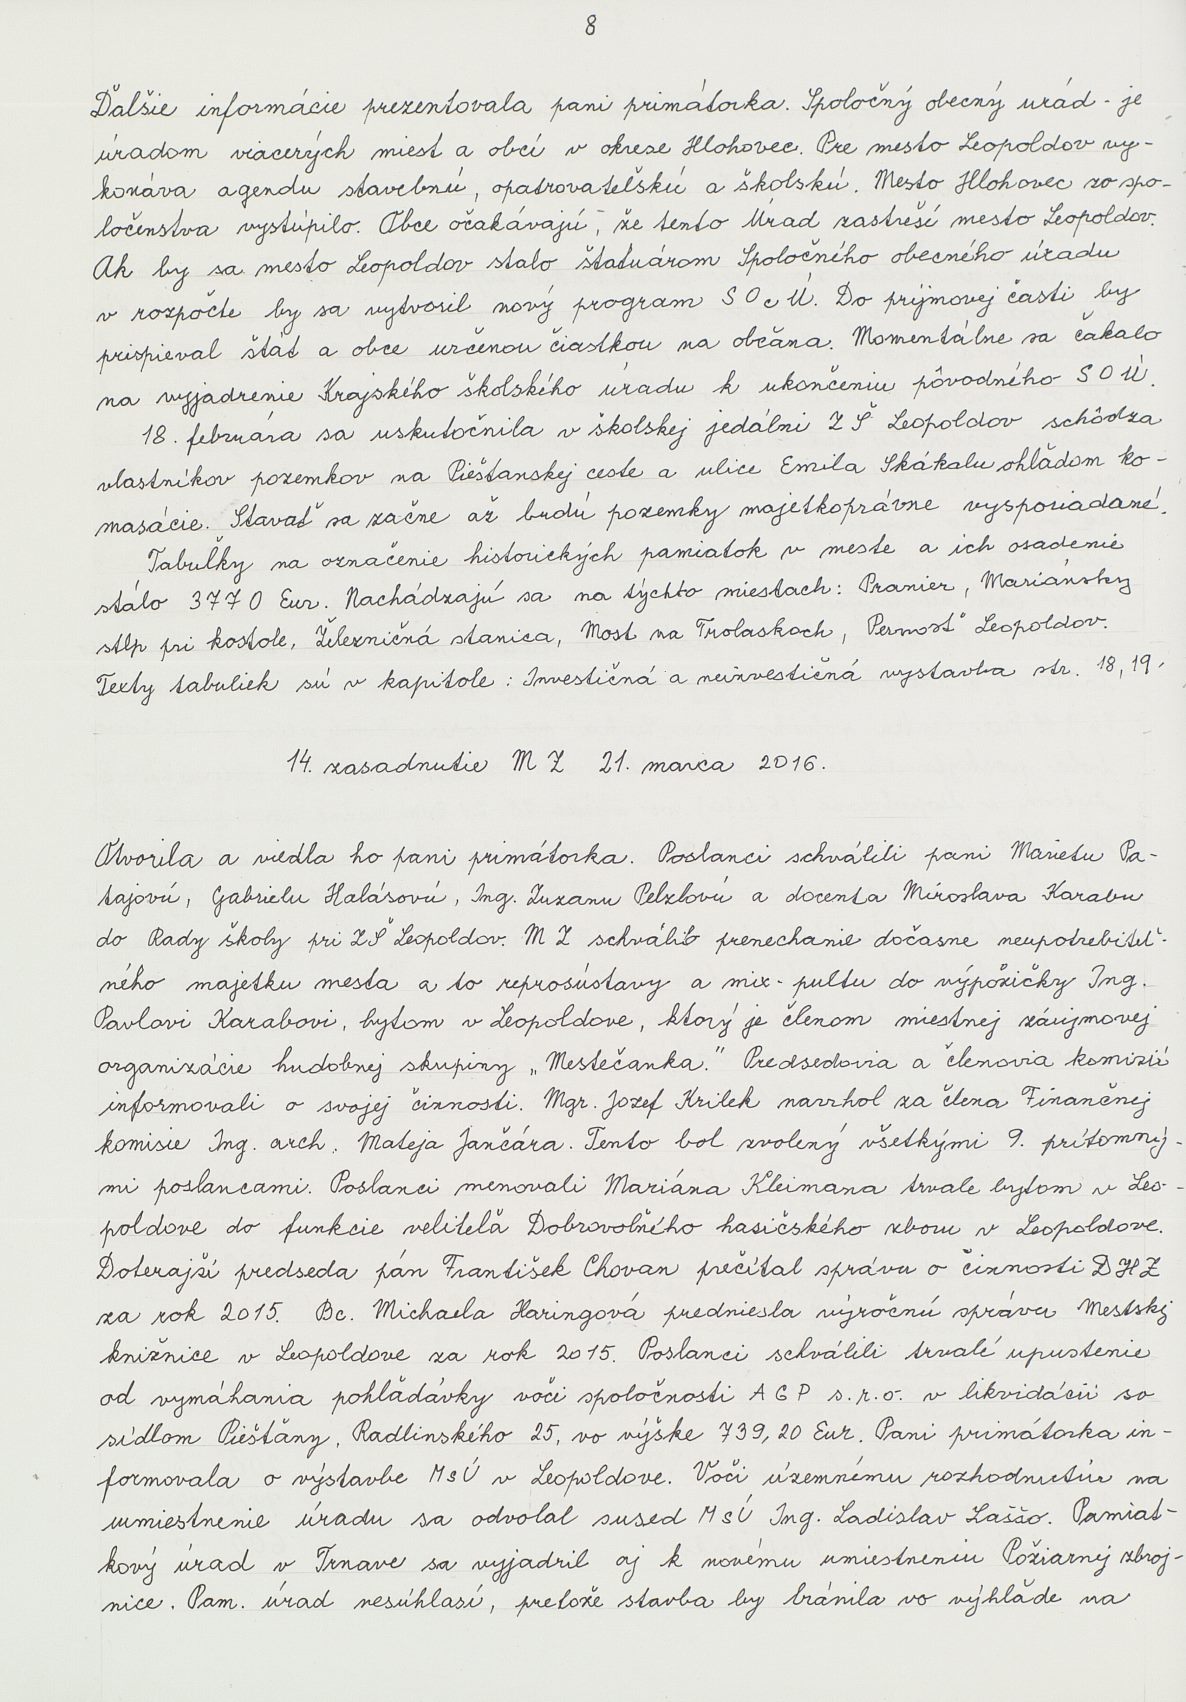 8
Ďalšie informácie prezentovala pani primátorka. Spoločný obecný úrád - je
úradom viacerých miest a obcí v okrese Hlohovec. Pre mesto Leopoldov vy-
konáva agendu stavebnú, opatrovateľskú a školskú. Mesto Hlohovec zo spo-
ločenstva vystúpilo. Obce očakávajú, že tento Úrad zastreší mesto Leopoldov.
Ak by sa mesto Leopoldov stalo štatuárom Spoločného obecného úradu
v rozpočte by sa vytvoril nový program S O c Ú. Do príjmovej časti by
prispieval štát a obce určenou čiastkou na občana. Momentálne sa čakalo
na vyjadrenie Krajského školského úradu k ukončeniu pôvodného S O Ú.
18. februára sa uskutočnila v školskej jedálni Z Š Leopoldov schôdza
vlastníkov pozemkov na Piešťanskej ceste a ulice Emila Skákalu ohľadom ko-
masácie. Stavať sa začne až budú pozemky majetkoprávne vysporiadané.
Tabuľky na označenie historických pamiatok v meste a ich osadenie
stálo 3770 Eur. Nachádzajú sa na týchto miestach: Pranier, Mariánsky
stĺp pri kostole, Železničná stanica, Most na Trolaskoch, Pevnosť Leopoldov.
Texty tabuliek sú v kapitole: Investičná a neinvestičná vystavba str. 18, 19.
14. zasadnutie M Z 21. marca 2016.
Otvorila a viedla ho pani primátorka. Poslanci schválili pani Marietu Pa-
tajovú, Gabrielu Halásovú, Ing. Zuzanu Pelzlovú a docenta Miroslava Karabu
do Rady školy pri ZŠ Leopoldov. M Z schválilo prenechanie dočasne neupotrebiteľ-
ného majetku mesta a to reprosústavy a mix-pultu do výpôžičky Ing.
Pavlovi Karabovi, bytom v Leopoldove, ktorý je členom miestnej záujmovej
organizácie hudobnej skupiny „Mestečanka." Predsedovia a členovia komisií
informovali o svojej činnosti. Mgr. Jozef Krilek navrhol za člena Finančnej
komisie Ing. arch. Mateja Jančára. Tento bol zvolený všetkými 9. prítomný-
mi poslancami. Poslanci menovali Mariána Kleimana trvale bytom v Leo-
poldove do funkcie veliteľa Dobrovoľného hasičského zboru v Leopoldove.
Doterajší predseda pán František Chovan prečítal správu o činnosti DHZ
za rok 2015. Bc. Michaela Haringová predniesla výročnú správu Mestskej
knižnice v Leopoldove za rok 2015. Poslanci schválili trvalé upustenie
od vymáhania pohľadávky voči spoločnosti A G P s.r.o. v likvidácii so
sídlom Piešťany, Radlinského 25, vo výške 739,20 Eur. Pani primátorka in-
formovala o výstavbe MsÚ v Leopoldove. Voči územnému rozhodnutiu na
umiestnenie úradu sa odvolal sused MsÚ Ing. Ladislav Laššo. Pamiat-
kový úrad v Trnave sa vyjadril aj k novému umiestneniu Požiarnej zbroj-
nice. Pam. úrad nesúhlasí, pretože stavba by bránila vo výhľade na